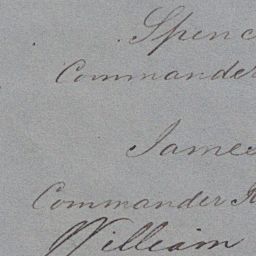 Spenc
Commander
James
Commander R
William